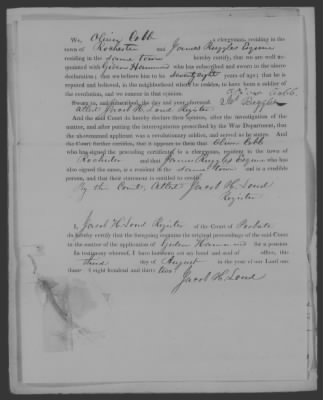 We, Oliver Cobb a clergyman, residing in the
town of Rochester and James Ruggles Esquire
residing in the same town hereby certify, that we are well ac-
quainted with Gideon Hammond who has subscribed and sworn to the above
declaration; that we believe him to be seventy eight years of age; that he is
reputed and believed, in the neighborhood where he resides, to have been a soldier of
the revolution, and we concur in that opinion. Oliver Cobb
Sworn to, and subscribed, the day and year aforesaid. Js Ruggles
Attest Jacob H. Loud Register
And the said Court do hereby declare their opinion, after the investigation of the
matter, and after putting the interrogatories prescribed by the War Department, that
the abovenamed applicant was a revolutionary soldier, and served as he states. And
the Court further certifies, that it appears to them that Oliver Cobb
who has signed the preceding certificate is a clergyman, resident in the town of
Rochester and that James Ruggles Esquire who has
also signed the same, is a resident in the same town and is a credible
person, and that their statement is entitled to credit.
By the Court, Attest Jacob H. Loud
Register
I, Jacob H. Loud Register of the Court of Probate
do hereby certify that the foregoing contains the original proceedings of the said Court
in the matter of the application of Gideon Hammond for a pension.
In testimony whereof, I have hereunto set my hand and seal of office, this
third day of August in the year of our Lord one
thousand eight hundred and thirty two
Jacob H. Loud